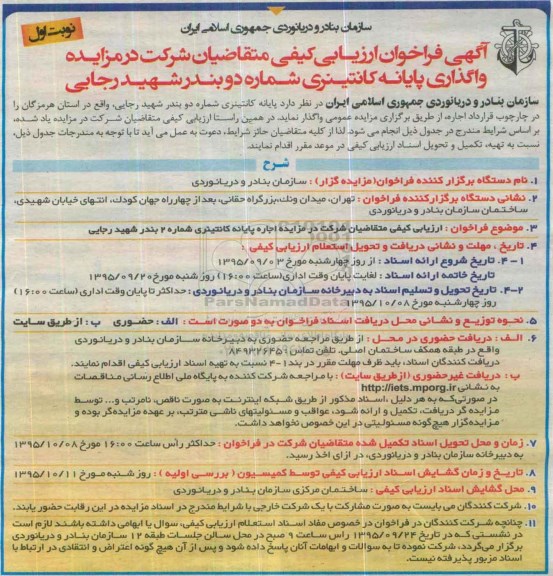 سازمان بنادر و دریانوردی جمهوری اسلامی ایران
نوبت اول
آگهی فراخوان ارزیابی کیفی متقاضیان شرکت در مزایده
واگذاری پایانه کانتینری شماره دو بندر شهید رجایی
سازمان بنادر و دریانوردی جمهوری اسلامی ایران در نظر دارد پایانه کانتینری شماره دو بندر شهید رجایی، واقع در استان هرمزگان را
در چارچوب قرارداد اجاره، از طریق برگزاری مزایده عمومی واگذار نماید، در همین راستا ارزیابی کیفی متقاضیان شرکت در مزایده یاد شده،
بر اساس شرایط مندرج در جدول ذیل انجام می شود. لذا از کلیه متقاضیان حائز شرایط، دعوت به عمل می آید تا با توجه به مندرجات جدول ذیل،
نسبت به تهیه، تکمیل و تحویل اسناد ارزیابی کیفی در موعد مقرر اقدام نمایند.
شرح
۱. نام دستگاه برگزار کننده فراخوان(مزایده گزار) : سازمان بنادر و دریانوردی
۲. نشانی دستگاه برگزارکننده فراخوان : تهران، میدان ونک،بزرگراه حقانی، بعد از چهارراه جهان کودک، انتهای خیابان شهیدی،
ساختمان سازمان بنادر و دریانوردی
۳. موضوع فراخوان : ارزیابی کیفی متقاضیان شرکت در مزایده اجاره پایانه کانتینری شماره ۲ بندر شهید رجایی
۴. تاریخ ، مهلت و نشانی دریافت و تحویل استعلام ارزیابی کیفی :
۴-۱ تاریخ شروع ارائه اسناد : از روز چهارشنبه مورخ ۱۳۹۵/۰۹/۰۳
تاریخ خاتمه ارائه اسناد : لغایت پایان وقت اداری(ساعت ۱۶:۰۰) روز شنبه مورخ ۱۳۹۵/۰۹/۲۰
۴-۲ تاریخ تحویل و تسلیم اسناد به دبیرخانه سازمان بنادر و دریانوردی : حداکثر تا پایان وقت اداری (ساعت ۱۶:۰۰)
روز چهارشنبه مورخ ۱۳۹۵/۱۰/۰۸
ParsNamadData
۵. نحوه توزیع و نشانی محل دریافت اسناد فراخوان به دو صورت است : الف : حضوری ب : از طریق سایت
۶. الف : دریافت حضوری در محل : از طریق مراجعه حضوری به دبیرخانه سازمان بنادر و دریانوردی
واقع در طبقه همکف ساختمان اصلی. تلفن تماس: ۸۴۹۳۲۶۴۵
دریافت کنندگان اسناد، باید ظرف مهلت مقرر در بند ۱-۴ نسبت به تهیه اسناد ارزیابی کیفی اقدام نمایند.
ب : دریافت غیرحضوری (از طریق سایت) : با مراجعه شرکت کننده به پایگاه ملی اطلاع رسانی مناقصات
به نشانی http://iets.mporg.ir
در صورتی که به هر دلیل ،اسناد مذکور از طریق شبکه اینترنت به صورت ناقص، نامرتب و... توسط
مزایده گر دریافت، تکمیل و ارائه شود، عواقب و مسئولیتهای ناشی مترتب، بر عهده مزایده گر بوده و
مزایده گزار هیچگونه مسئولیتی در این خصوص نخواهد داشت.
۷. زمان و محل تحویل اسناد تکمیل شده متقاضیان شرکت در فراخوان : حداکثر رأس ساعت ۱۶:۰۰ مورخ ۱۳۹۵/۱۰/۰۸
به دبیرخانه سازمان بنادر و دریانوردی، در ازای اخذ رسید.
۸. تاریخ و زمان گشایش اسناد ارزیابی کیفی توسط کمیسیون ( بررسی اولیه ) : روز شنبه مورخ ۱۳۹۵/۱۰/۱۱
۹. محل گشایش اسناد ارزیابی کیفی : ساختمان مرکزی سازمان بنادر و دریانوردی
۱۰. شرکت کنندگان می بایست به صورت مشارکت با یک شرکت خارجی با شرایط مندرج در اسناد مزایده در این رقابت حضور یابند.
۱۱. چنانچه شرکت کنندگان در فراخوان در خصوص مفاد اسناد استعلام ارزیابی کیفی، سوال یا ابهامی داشته باشند لازم است
در نشستی که در تاریخ ۱۳۹۵/۰۹/۲۴ راس ساعت ۹ صبح در محل سالن جلسات طبقه ۱۲ سازمان بنادر و دریانوردی
برگزار می گردد، شرکت نموده تا به سوالات و ابهامات آنان پاسخ داده شود و پس از آن هیچ گونه اعتراض و انتقادی در ارتباط با
اسناد مزبور پذیرفته نیست.